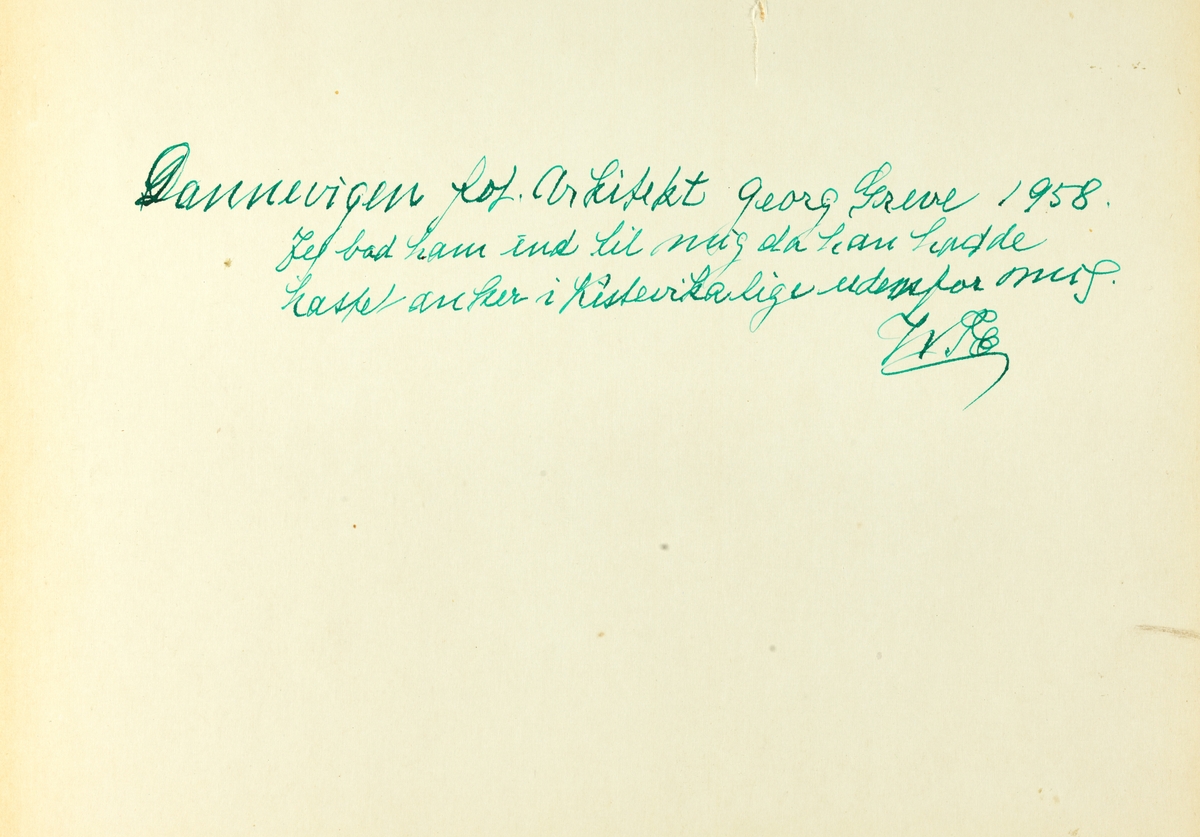 Dannevigen fot. Arkitekt Georg Greve 1958.
Jeg bad ham ind til mig da han hadde
kastet anker i Kistevika lige udenfor mig.